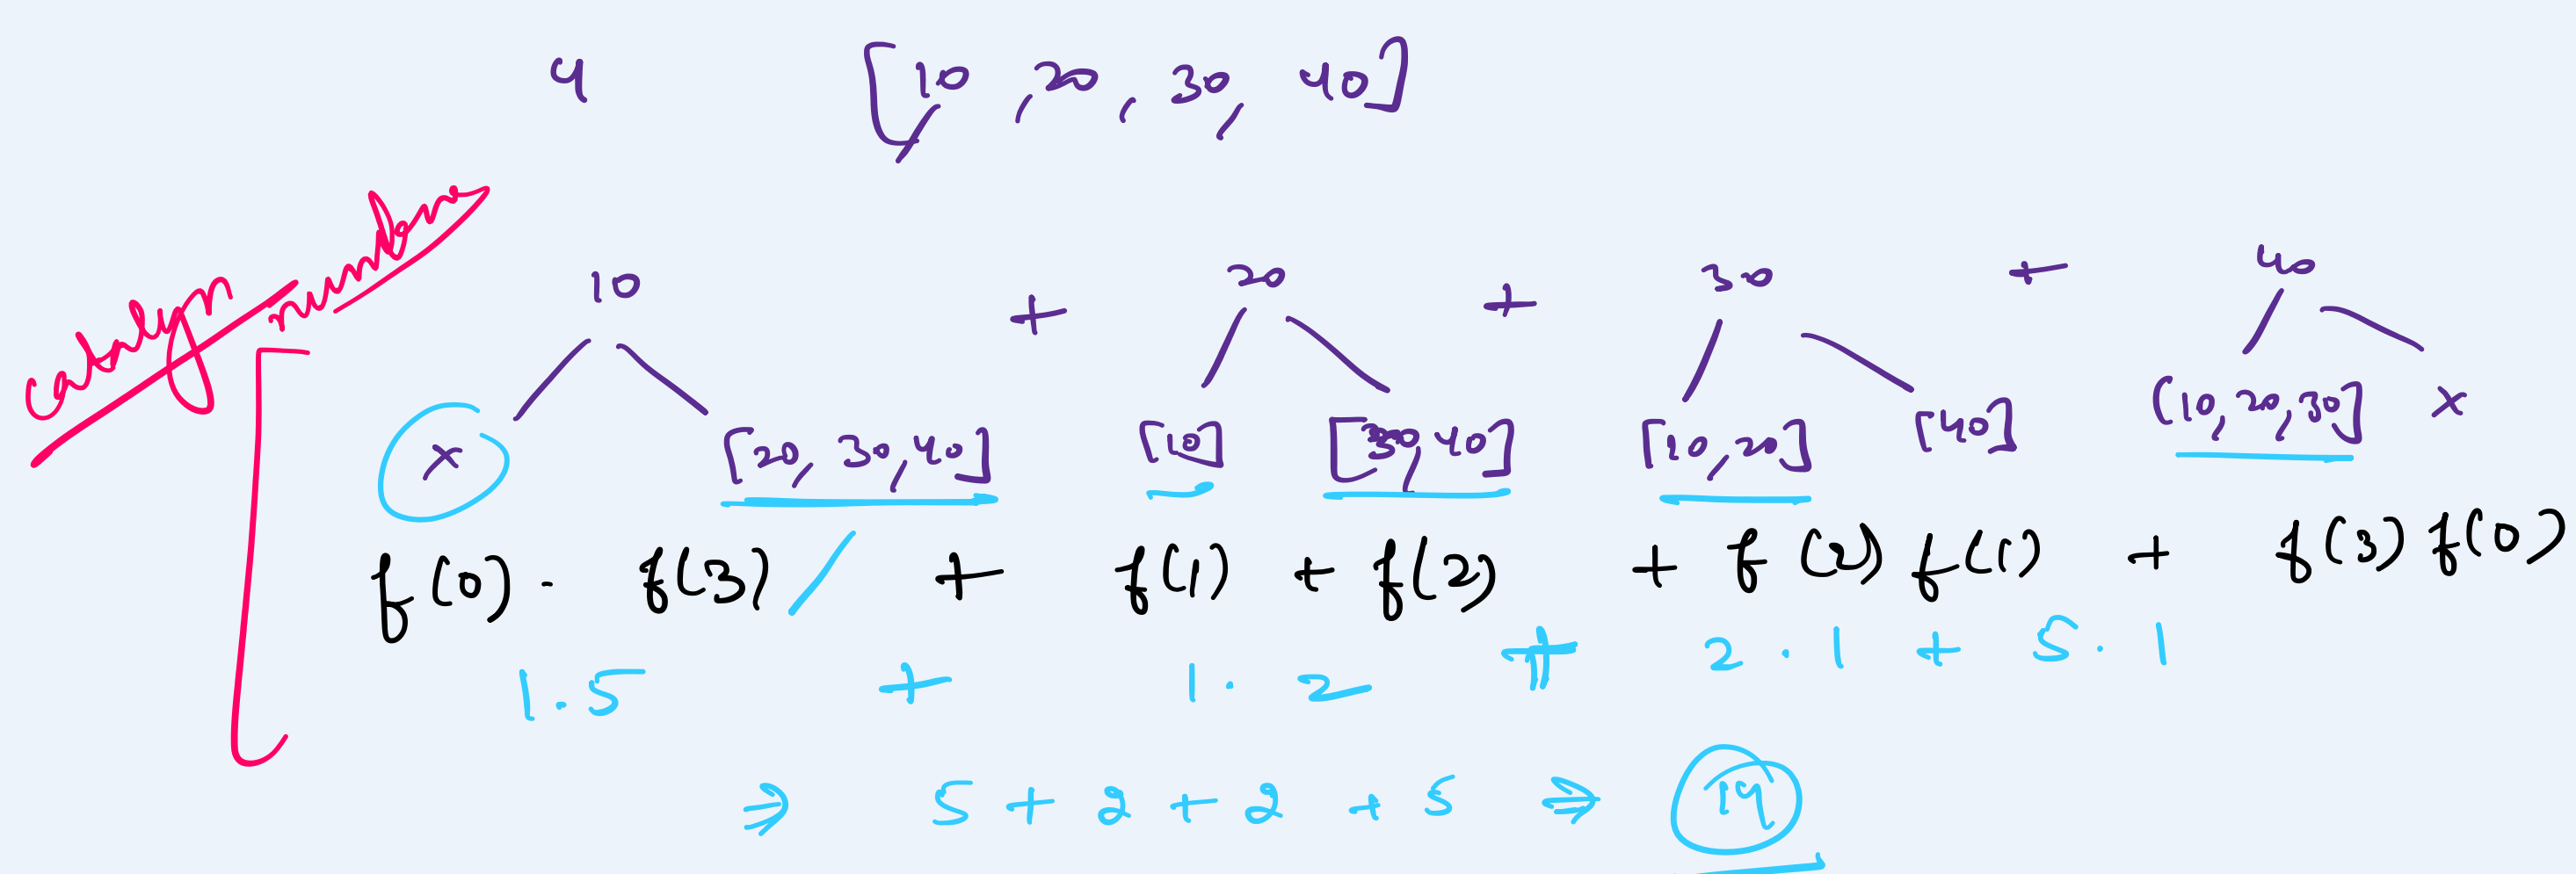 4 [10, 20, 30, 40]
catalyn numbers
10 + 20 + 30 + 40
x [20, 30, 40] [10] [30, 40] [10, 20] [40] (10, 20, 30] x
f(0) · f(3) + f(1) + f(2) + f(2) f(1) + f(3) f(0)
1.5 + 1.2 + 2.1 + 5.1
⇒ 5 + 2 + 2 + 5 ⇒ 14